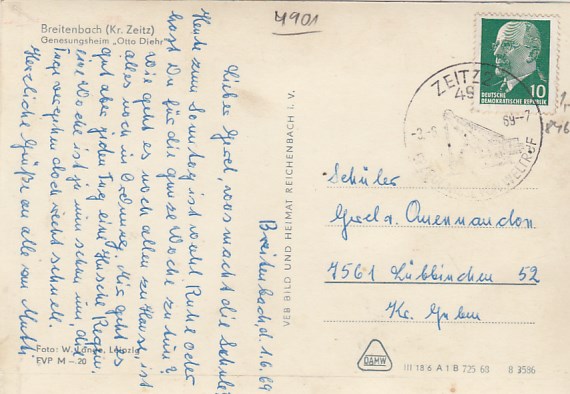 Breitenbach (Kr. Zeitz)
Genesungsheim „Otto Diehr"
4901
Breitenbach d. 1.6.69
Lieber Gerd, was macht die Schule?
Heute zum Sonntag ist wohl Ruhe oder
hast Du für die ganze Woche zu tun?
Wie geht es noch allen zu Hause, ist
alles noch in Ordnung. Mir geht es
gut aber jeden Tag eine Husche Regen.
Eine Woche ist ja nun schon um, die
Tage vergehen doch recht schnell.
Herzliche Grüße an alle von Mutti
Foto: W. Lange, Leipzig
EVP M – 20
VEB BILD UND HEIMAT REICHENBACH I. V.
DEUTSCHE
DEMOKRATISCHE REPUBLIK
10
ZEITZ
49
69--7
WELTRUF
1,-
846
Schüler
Gerd
7561 Lübbinchen 52
Kr. Guben
DAMW
III 18 6 A 1 B 725 68
8 3586